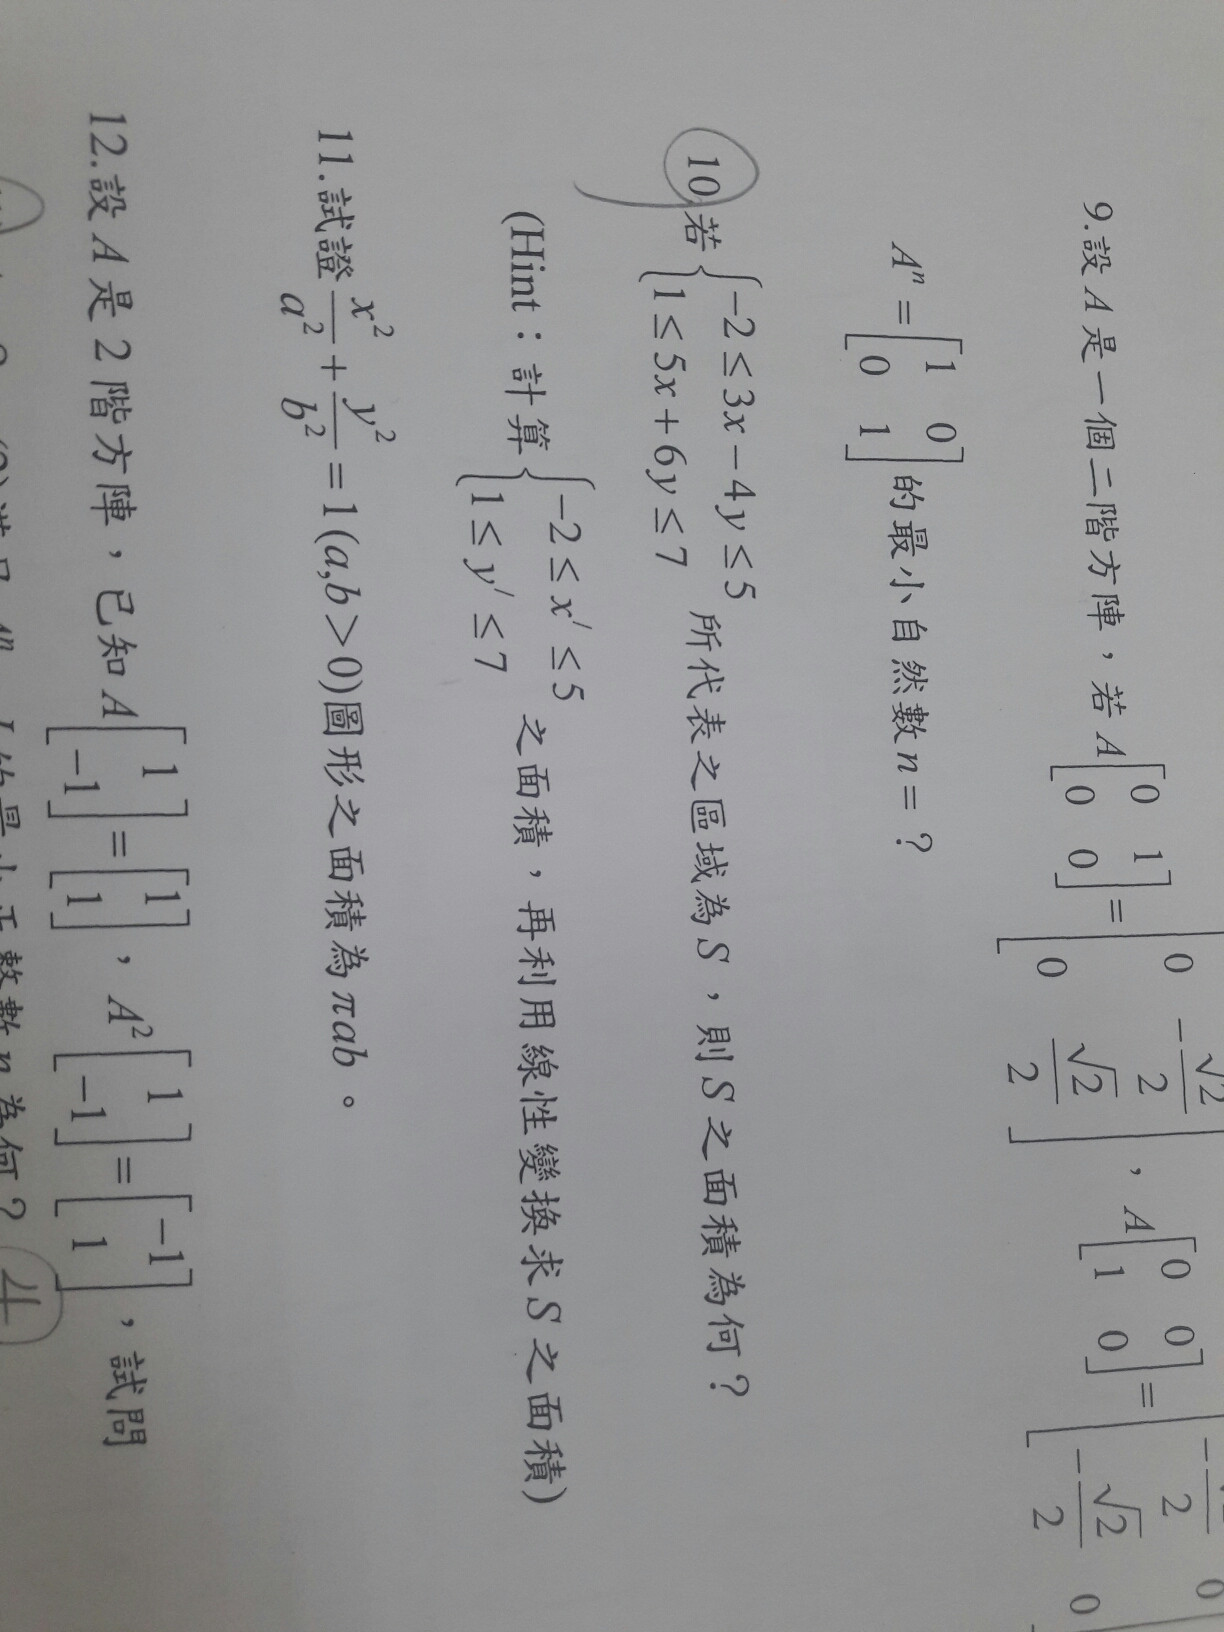 9.設 A 是一個二階方陣，若 A [0 1; 0 0] = [0 -√2/2; 0 √2/2]，A [0 0; 1 0] = [-√2/2 0; -√2/2 0]
Aⁿ = [1 0; 0 1] 的最小自然數 n = ?
10.若 { -2 ≤ 3x - 4y ≤ 5; 1 ≤ 5x + 6y ≤ 7 所代表之區域為 S，則 S 之面積為何？
(Hint：計算 { -2 ≤ x′ ≤ 5; 1 ≤ y′ ≤ 7 之面積，再利用線性變換求 S 之面積)
11.試證 x²/a² + y²/b² = 1 (a,b > 0) 圖形之面積為 πab。
12.設 A 是 2 階方陣，已知 A [1; -1] = [1; 1]，A² [1; -1] = [-1; 1]，試問
的最小正整數 n 為何？ 4